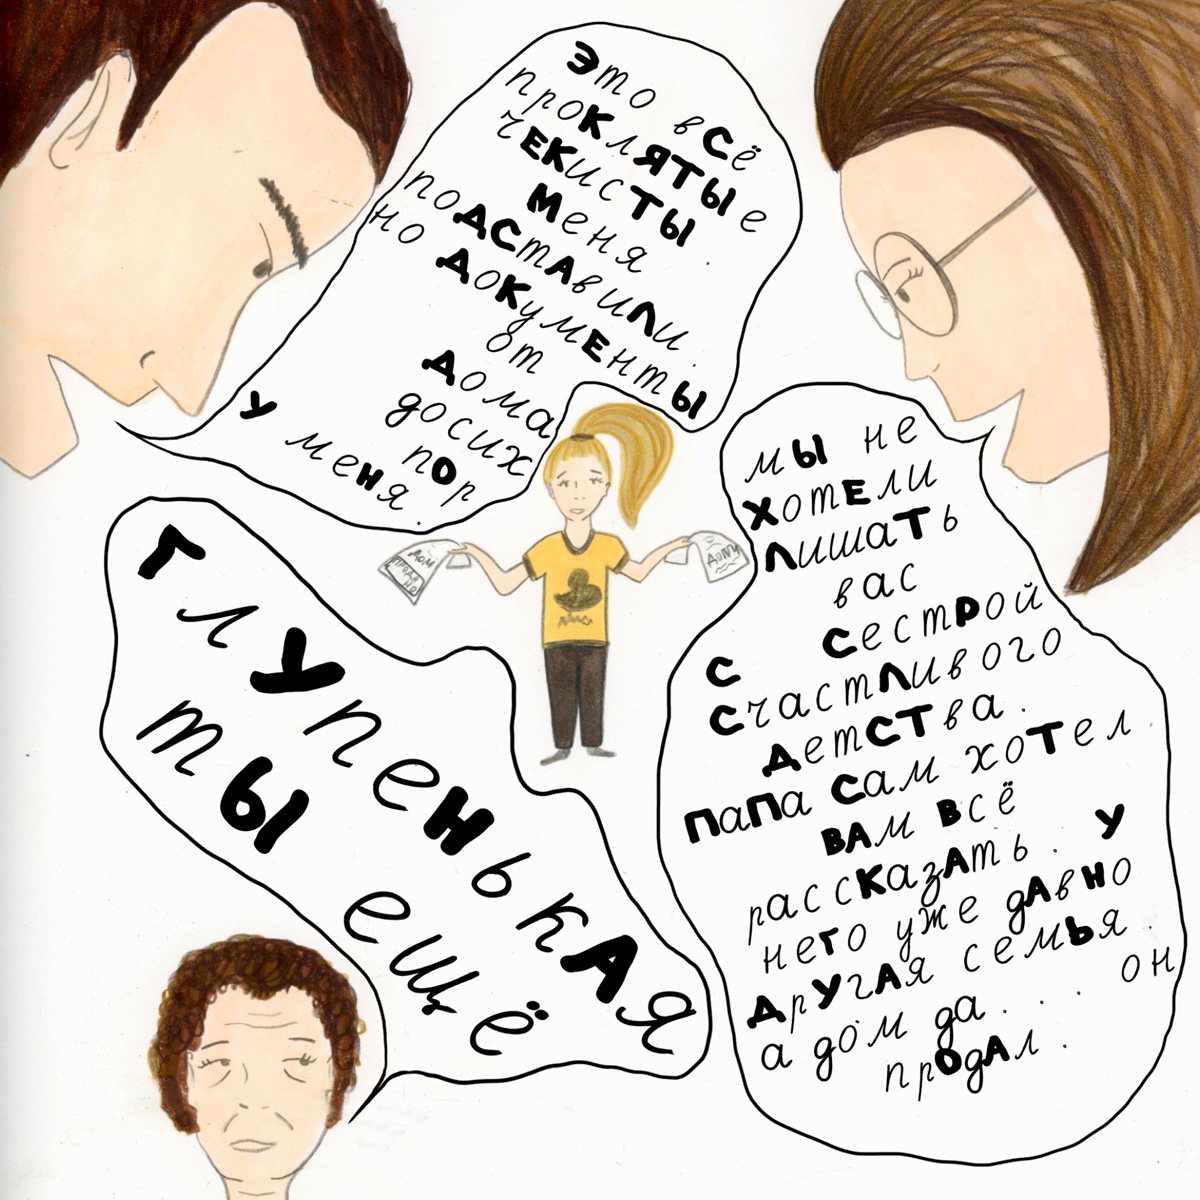 Это всё
проклятые
чекисты
меня
подставили.
но документы
от
дома
досих
пор
у меня.
мы не
хотели
лишать
вас
с сестрой
счастливого
детства.
папа сам хотел
вам всё
рассказать. у
него уже давно
другая семья.
а дом да.... он
продал.
дом
продано
дому
глупенькая
ты ещё